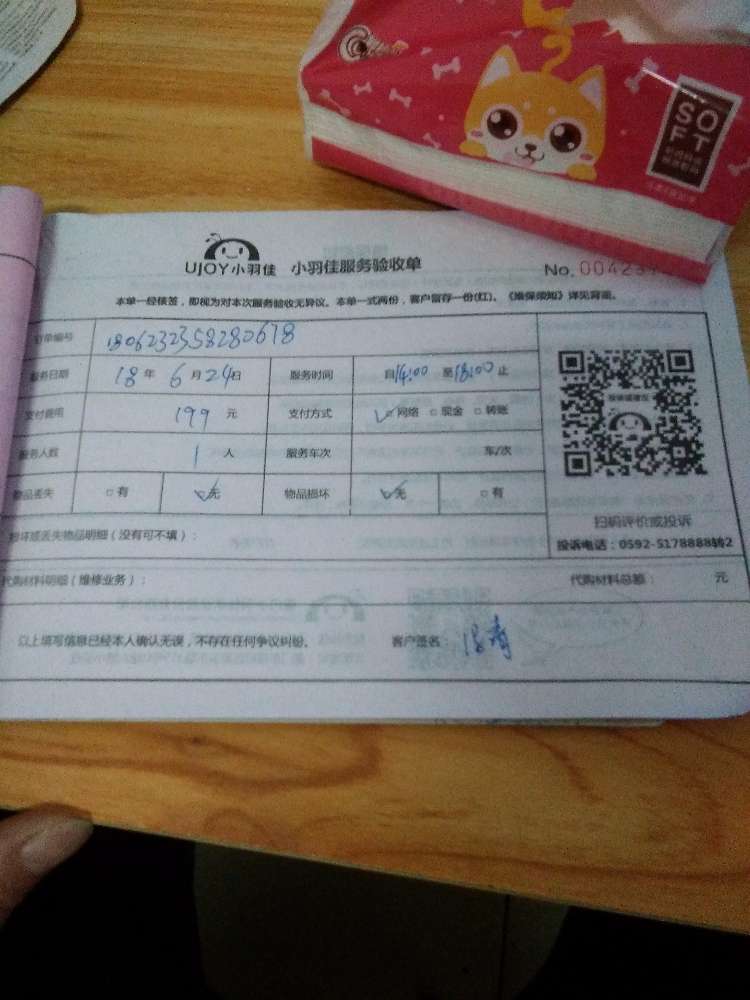 SOFT
UJOY小羽佳 小羽佳服务验收单 No. 00423
本单一经核签，即视为对本次服务验收无异议。本单一式两份，客户留存一份(红)。《维保须知》详见背面。
订单编号 1806232358280678
服务日期 18 年 6 月 24 日 服务时间 自 14:00 至 18:00 止
支付费用 199 元 支付方式 ☑网络 □现金 □转账
服务人数 1 人 服务车次 车/次
物品丢失 □有 ☑无 物品损坏 ☑无 □有
损坏或丢失物品明细（没有可不填）：
扫码评价或投诉
投诉电话：0592-5178888转2
代购材料明细（维修业务）： 代购材料总额： 元
以上填写信息已经本人确认无误，不存在任何争议纠纷。 客户签名：